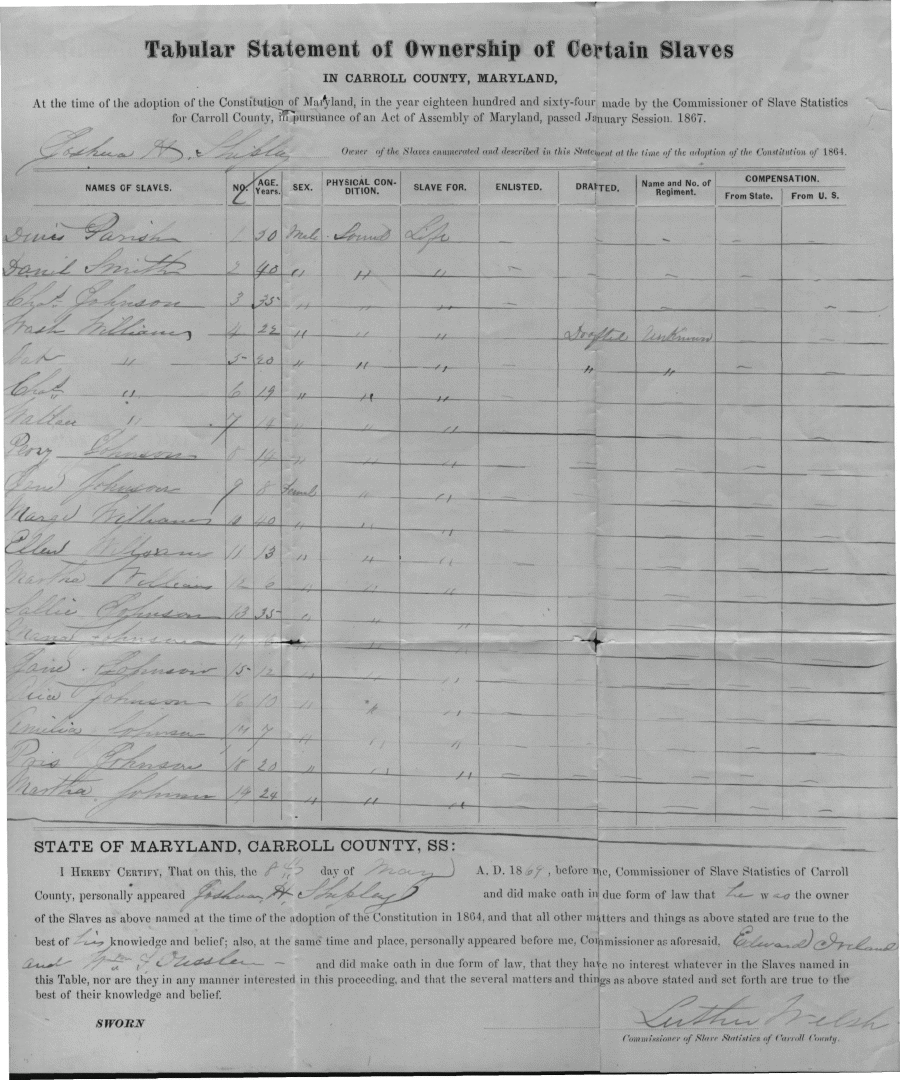 Tabular Statement of Ownership of Certain Slaves
IN CARROLL COUNTY, MARYLAND,
At the time of the adoption of the Constitution of Maryland, in the year eighteen hundred and sixty-four made by the Commissioner of Slave Statistics
for Carroll County, in pursuance of an Act of Assembly of Maryland, passed January Session. 1867.
Joshua H. Shipley Owner of the Slaves enumerated and described in this Statement at the time of the adoption of the Constitution of 1864.
NAMES OF SLAVES. NO. AGE. Years. SEX. PHYSICAL CONDITION. SLAVE FOR. ENLISTED. DRAFTED. Name and No. of Regiment. COMPENSATION. From State. From U. S.
Parish 1 30 Male Sound Life – – – – –
Daniel Smith 2 40 " " " – – – – –
Chas. Johnson 3 35 " " " – – – – –
Wash Williams 4 22 " " " – Drafted Unknown – –
" 5 20 " " " – " " – –
Chas " 6 19 " " " – – – – –
" 7 " " " – – – – –
Johnson 8 14 " " " – – – – –
Johnson 9 8 " " – – – – –
Williams 10 40 " " " – – – – –
Ellen Williams 11 13 " " " – – – – –
Martha Williams 12 6 " " " – – – – –
Sallie Johnson 13 35 " " " – – – – –
Johnson 14 " " " – – – – –
Jane Johnson 15 12 " " " – – – – –
Johnson 16 10 " " " – – – – –
Johnson 17 7 " " " – – – – –
Johnson 18 20 " " " – – – – –
Martha Johnson 19 24 " " " – – – – –
STATE OF MARYLAND, CARROLL COUNTY, SS:
I HEREBY CERTIFY, That on this, the 8th day of May A, D. 1869, before me, Commissioner of Slave Statistics of Carroll
County, personally appeared Joshua H. Shipley and did make oath in due form of law that he was the owner
of the Slaves as above named at the time of the adoption of the Constitution in 1864, and that all other matters and things as above stated are true to the
best of his knowledge and belief; also, at the same time and place, personally appeared before me, Commissioner as aforesaid, Edward Ireland
and Wm and did make oath in due form of law, that they have no interest whatever in the Slaves named in
this Table, nor are they in any manner interested in this proceeding, and that the several matters and things as above stated and set forth are true to the
best of their knowledge and belief.
SWORN
Luther Welsh
Commissioner of Slave Statistics of Carroll County.